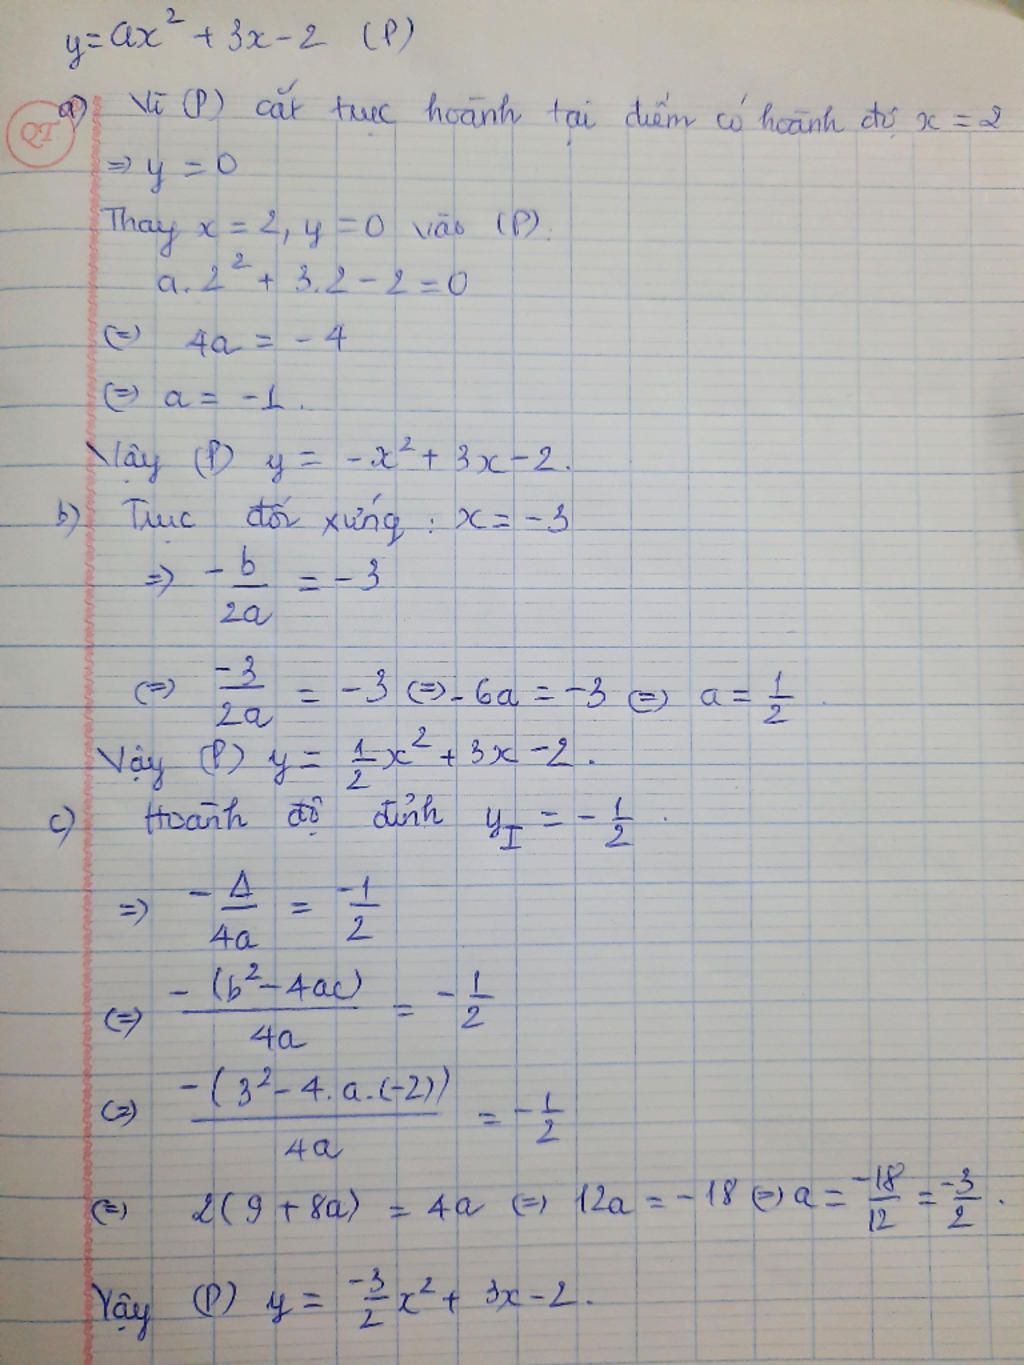 y = ax² + 3x - 2 (P)
a) Vì (P) cắt trục hoành tại điểm có hoành độ x = 2
QT
⇒ y = 0
Thay x = 2, y = 0 vào (P).
a.2² + 3.2 - 2 = 0
(=) 4a = -4
(=) a = -1.
Vậy (P) y = -x² + 3x - 2.
b) Trục đối xứng : x = -3
⇒ -b/2a = -3
(=) -3/2a = -3 (=) -6a = -3 (=) a = 1/2.
Vậy (P) y = 1/2x² + 3x - 2.
c) Hoành độ đỉnh y_I = -1/2.
⇒ -Δ/4a = -1/2
(=) -(b² - 4ac)/4a = -1/2
(=) -(3² - 4.a.(-2))/4a = -1/2
(=) 2(9 + 8a) = 4a (=) 12a = -18 (=) a = -18/12 = -3/2.
Vậy (P) y = -3/2x² + 3x - 2.